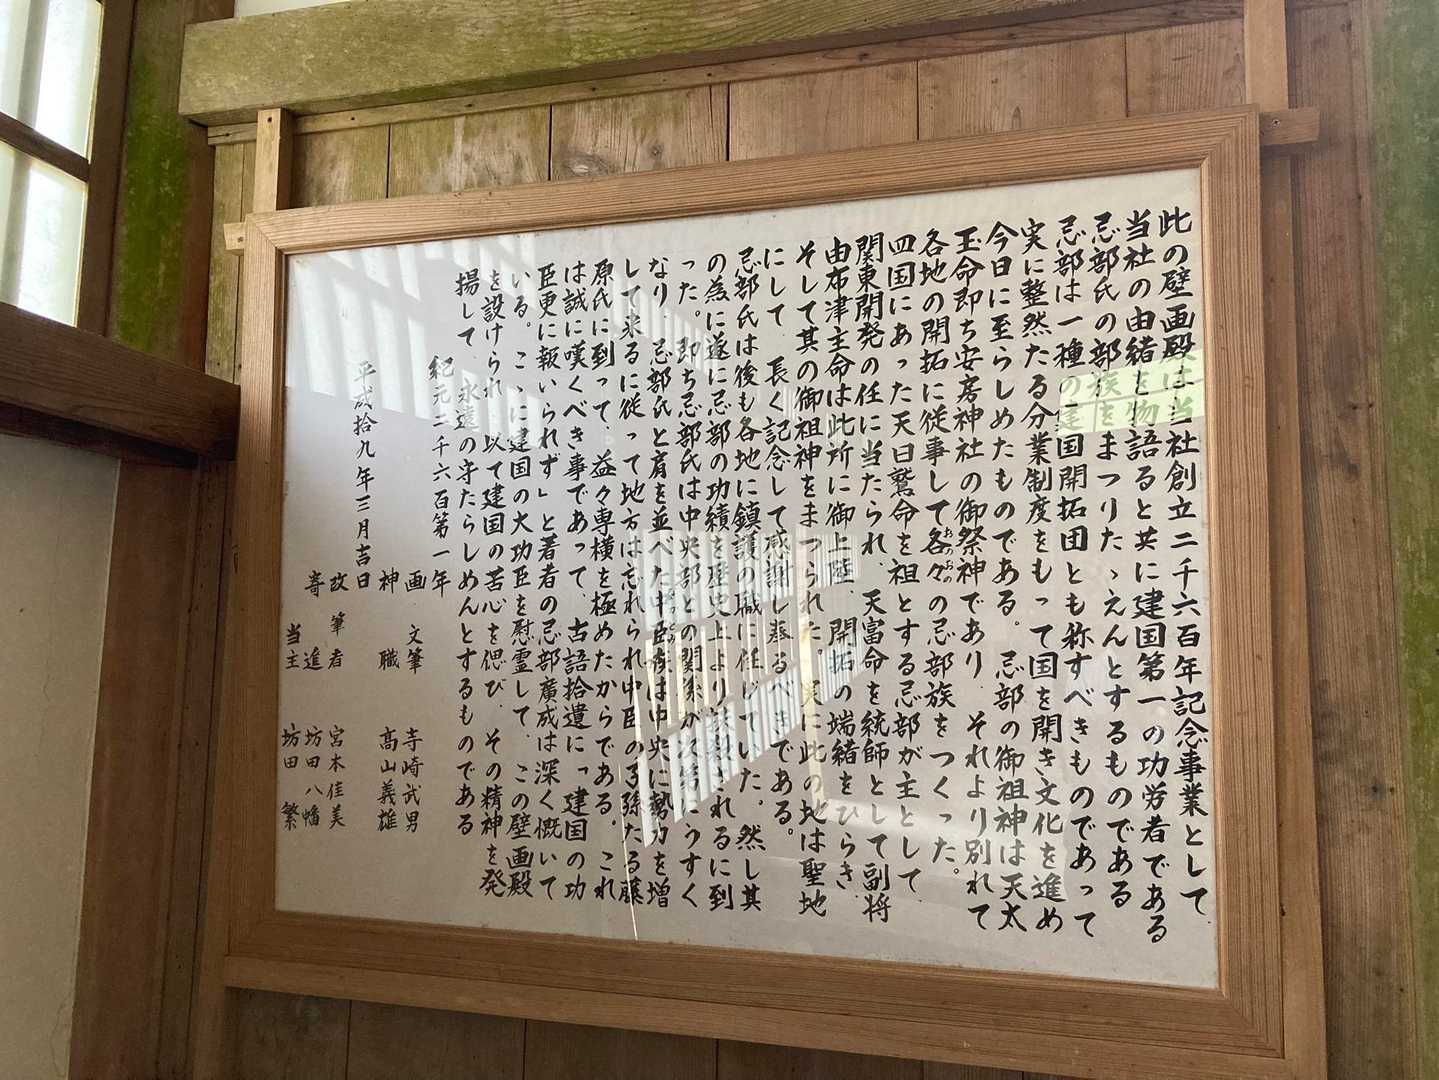 此の壁画殿は当社創立二千六百年記念事業として
当社の由緒を物語ると共に建国第一の功労者である
忌部氏の部族をまつりたゝえんとするものである
忌部は一種の建国開拓団とも称すべきものであって
実に整然たる分業制度をもって国を開き文化を進め
今日に至らしめたものである。忌部の御祖神は天太
玉命即ち安房神社の御祭神であり、それより別れて
各地の開拓に従事して各々の忌部族をつくった。
おのおの
四国にあった天日鷲命を祖とする忌部が主として、
関東開発の任に当たられ、天富命を統師として副将
由布津主命は此所に御上陸、開拓の端緒をひらき、
そして其の御祖神をまつられた。実に此の地は聖地
にして、長く記念して感謝し奉るべきである。
忌部氏は後も各地に鎮護の職に任じていた。然し其
の為に遂に忌部の功績を歴史上より抹殺されるに到
った。即ち忌部氏は中央部との関係が次第にうすく
なり、忌部氏と肩を並べた中臣族は中央に勢力を増
して来るに従って地方は忘れられ中臣の子孫たる藤
原氏に到って、益々専横を極めたからである。これ
は誠に嘆くべき事であって、古語拾遺に「建国の功
臣更に報いられず」と著者の忌部廣成は深く慨いて
いる。こゝに建国の大功臣を慰霊して、この壁画殿
を設けられ、以て建国の苦心を偲び、その精神を発
揚して、永遠の守たらしめんとするものである
紀元二千六百第一年
画 文筆 寺崎武男
神職 高山義雄
平成拾九年三月吉日
改筆者 宮本佳美
寄進 坊田八幡
当主 坊田繁